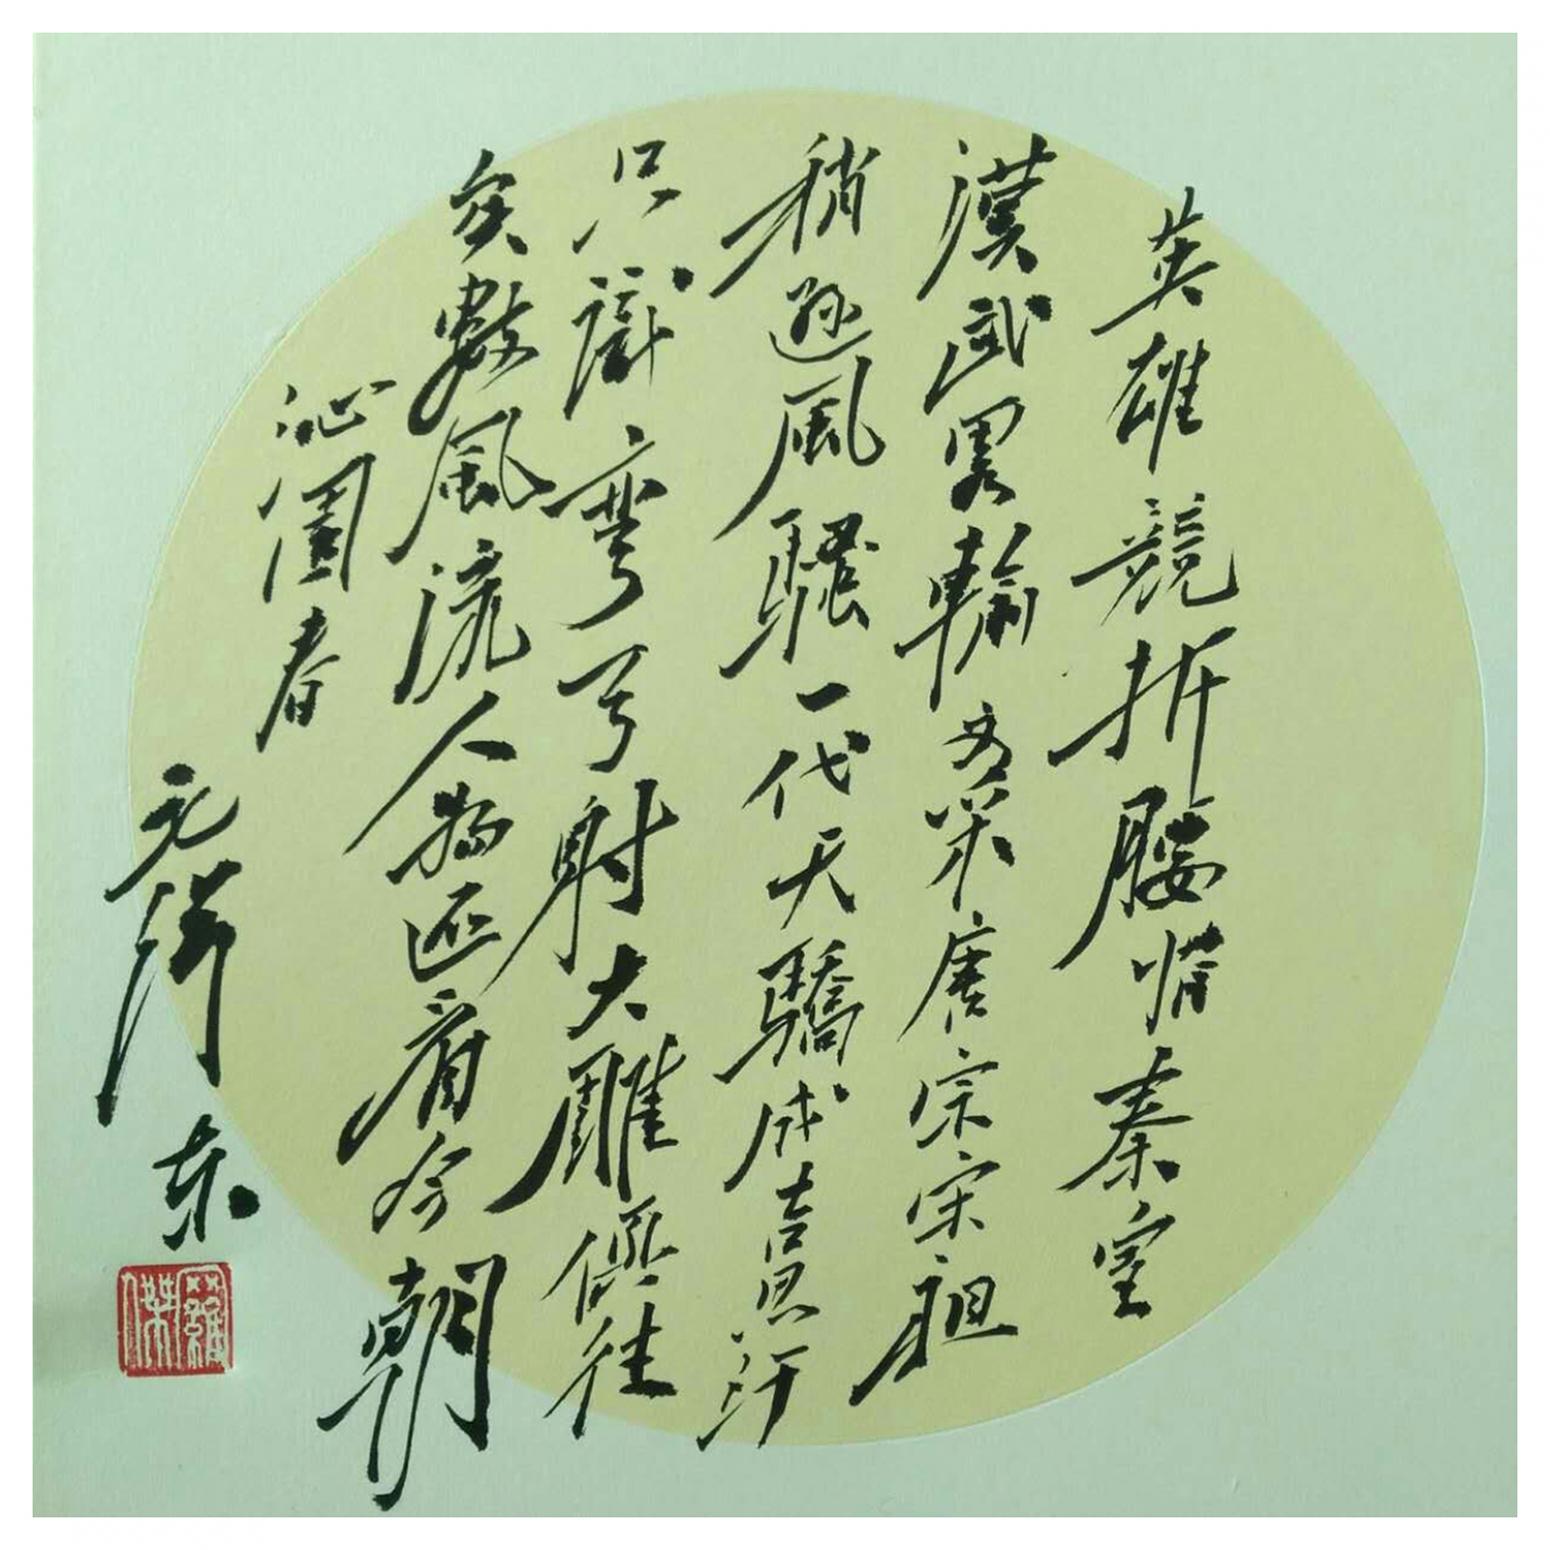 英雄競折腰惜秦皇
漢武畧輸文采唐宗宋祖
稍遜風騷一代天驕成吉思汗
只識彎弓射大雕俱往
矣數風流人物还看今朝
沁園春
毛澤东
羅傑